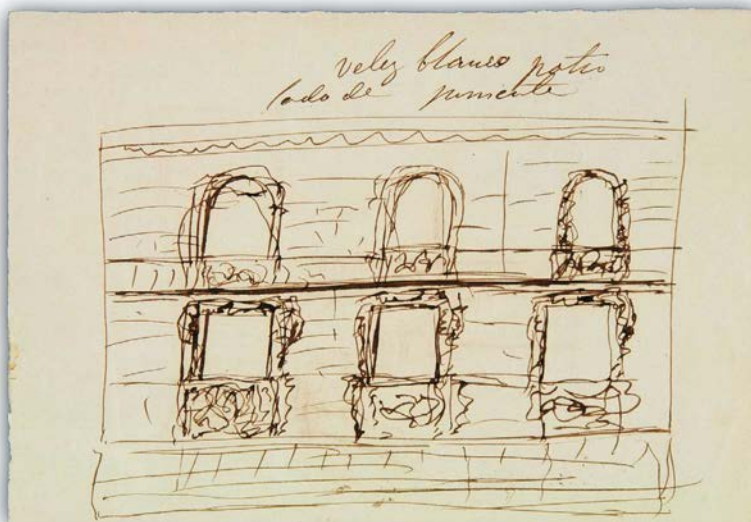 velez blanco patio
lado de poniente